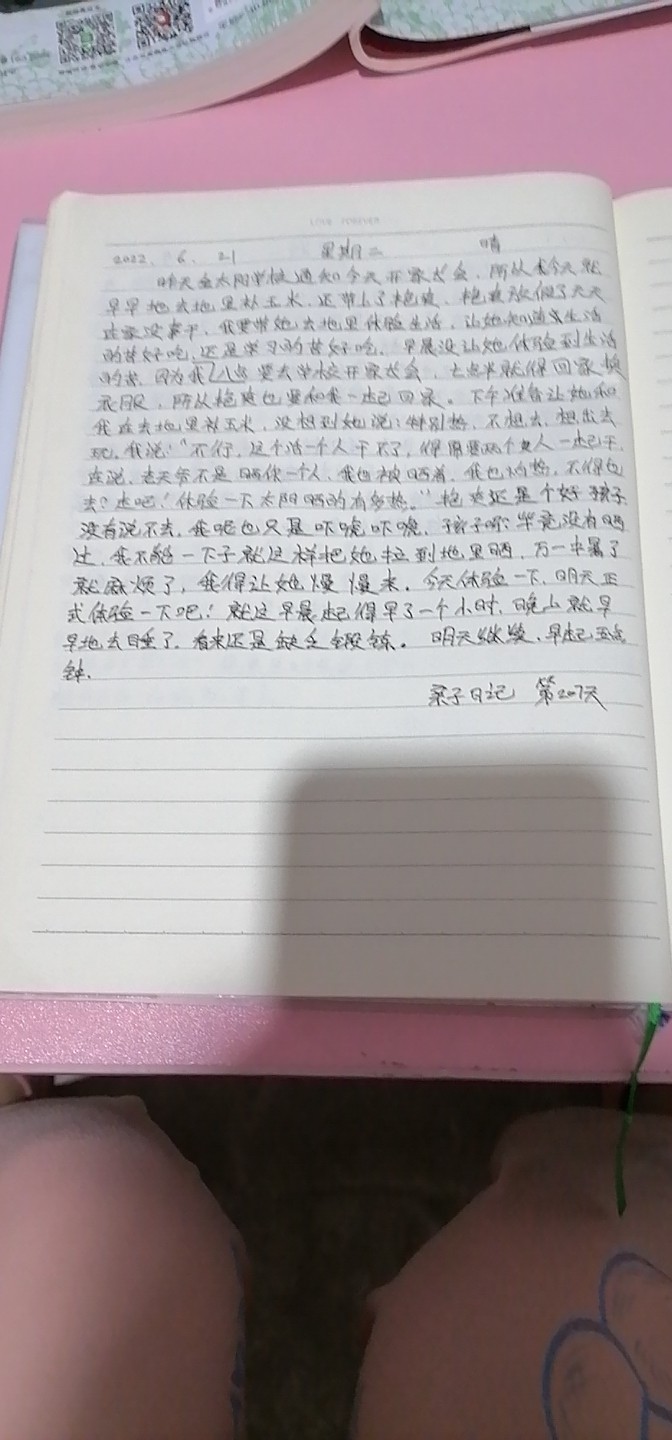 LOVE FOREVER
2022. 6. 21 星期二 晴
昨天金太阳学校通知今天开家长会,所以我今天就
早早地去地里补玉米,还带上了艳爽,艳爽放假了天天
在家没事干,我要带她去地里体验生活,让她知道是生活
的苦好吃,还是学习的苦好吃。早晨没让她体验到生活
的苦,因为我八点要去学校开家长会,七点半就得回家换
衣服,所以艳爽也要和我一起回家。下午准备让她和
我在去地里补玉米,没想到她说:特别热,不想去,想出去
玩,我说:"不行,这个活一个人干不了,得需要两个人一起干,
在说,老天爷不是晒你一个人,我也被晒着,我也怕热,不得也
去?走吧!体验一下太阳晒的有多热。"艳爽还是个好孩子
没有说不去,我呢也只是吓唬吓唬,孩子嘛,毕竟没有晒
过,我不能一下子就这样把她拉到地里晒,万一中暑了
就麻烦了,我得让她慢慢来。今天体验一下,明天正
式体验一下吧!就这早晨起得早了一个小时,晚上就早
早地去睡了,看来还是缺乏锻炼。明天继续,早起五点
钟.
亲子日记 第207天